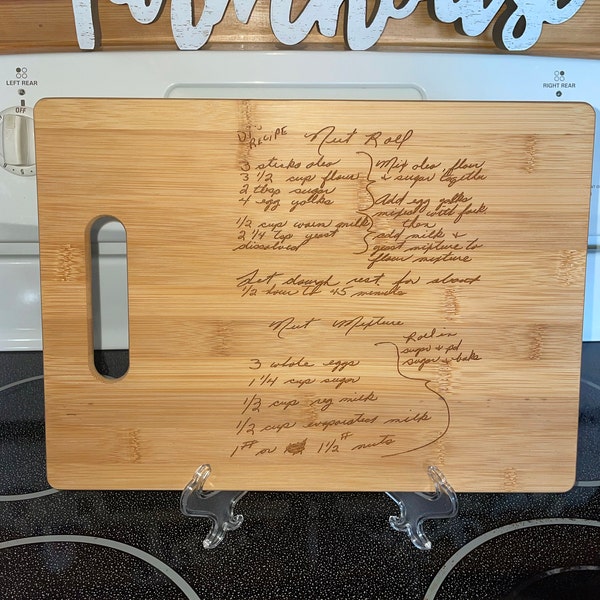 Farmhouse
LEFT REAR
OFF
RIGHT REAR
DJ's
RECIPE
Nut Roll
3 sticks oleo
3 1/2 cup flour
2 tbsp sugar
4 egg yolks
1/2 cup warm milk
2 1/4 tsp yeast
dissolved
Mix oleo flour
& sugar together
Add egg yolks
mixed with fork
then
add milk &
yeast mixture to
flour mixture
Let dough rest for about
1/2 hour to 45 minutes
Nut Mixture
Roll in
sugar & pd
sugar & bake
3 whole eggs
1 1/4 cup sugar
1/2 cup reg milk
1/2 cup evaporated milk
1# or 1 1/2# nuts